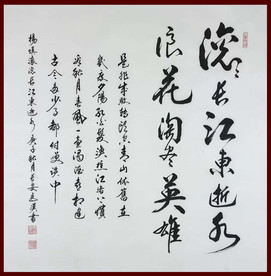 滚滚长江東逝水
浪花淘尽英雄
是非成敗转头空青山依舊在
幾度夕陽红白髮渔樵江渚上惯
看秋月春風一壺濁酒喜相逢
古今多少事都付笑谈中
楊慎滚滚长江東逝水